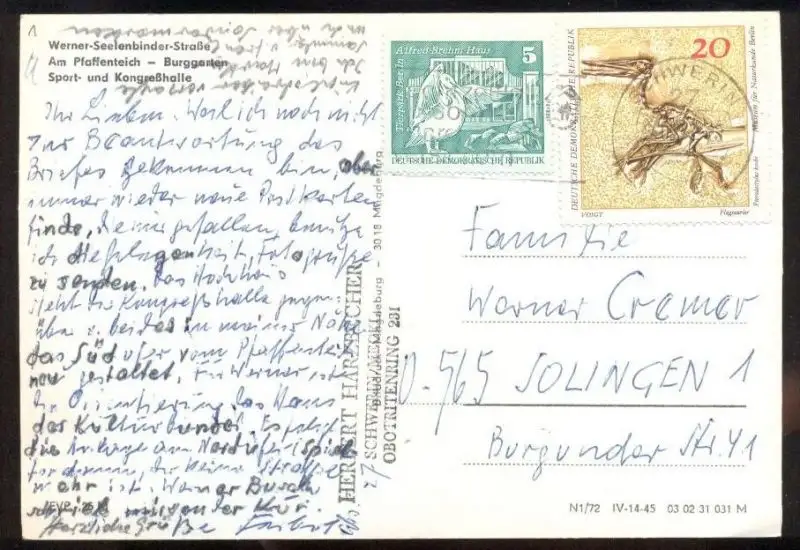 1
Werner-Seelenbinder-Straße
Am Pfaffenteich – Burggarten
Sport- und Kongreßhalle
Ihr Lieben. Weil ich noch nicht
zur Beantwortung des
Briefes gekommen bin, aber
immer wieder neue Postkarten
finde, die mir gefallen, benutze
ich die Gelegenheit, Fotogrüße
zu senden. Das Hochhaus
steht der Kongreßhalle gegen-
über u. beides in meiner Nähe
das Südufer vom Pfaffenteich
neu gestaltet. Für Werner ist
Orientierung das Haus
des Kulturbundes. Es folgt
die Anlage am Nordufer
der keine Straße
mehr ist. Werner
Kur.
Herzliche Grüße
EVP
HERBERT
SCHWERIN
OBOTRITENRING 231
3018 Magdeburg
Alfred-Brehm-Haus
5
Tierpark Berlin
DEUTSCHE DEMOKRATISCHE REPUBLIK
20
DEUTSCHE DEMOKRATISCHE REPUBLIK
Museum für Naturkunde Berlin
VOIGT
Flugsaurier
SCHWERIN
Familie
Werner Cremer
D-565 SOLINGEN 1
Burgunder Str. 41
N1/72 IV-14-45 03 02 31 031 M